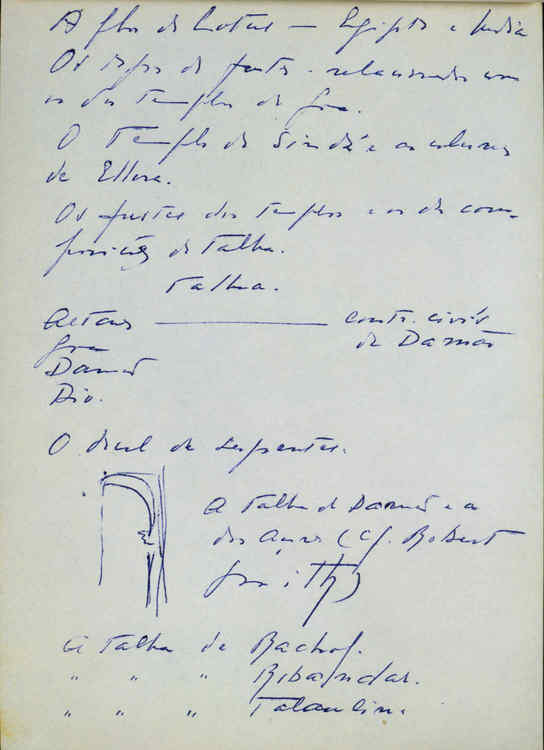 A flor de Lotus — Egipto e India
Os tipos de fustes relacionados com
os dos Templos de Goa.
O Templo de Sindé e as colunas
de Ellora.
Os fustes dos templos e os da com-
posição de Talha.
Talha.
Altares ——— constr. civis
de Damão
Goa
Damão
Dio.
O de serpentes.
A Talha de Damão e a
dos Açores (Cf. Robert
Smith)
A Talha de Bachof.
" " " Ribandar.
" " " Talaulim.